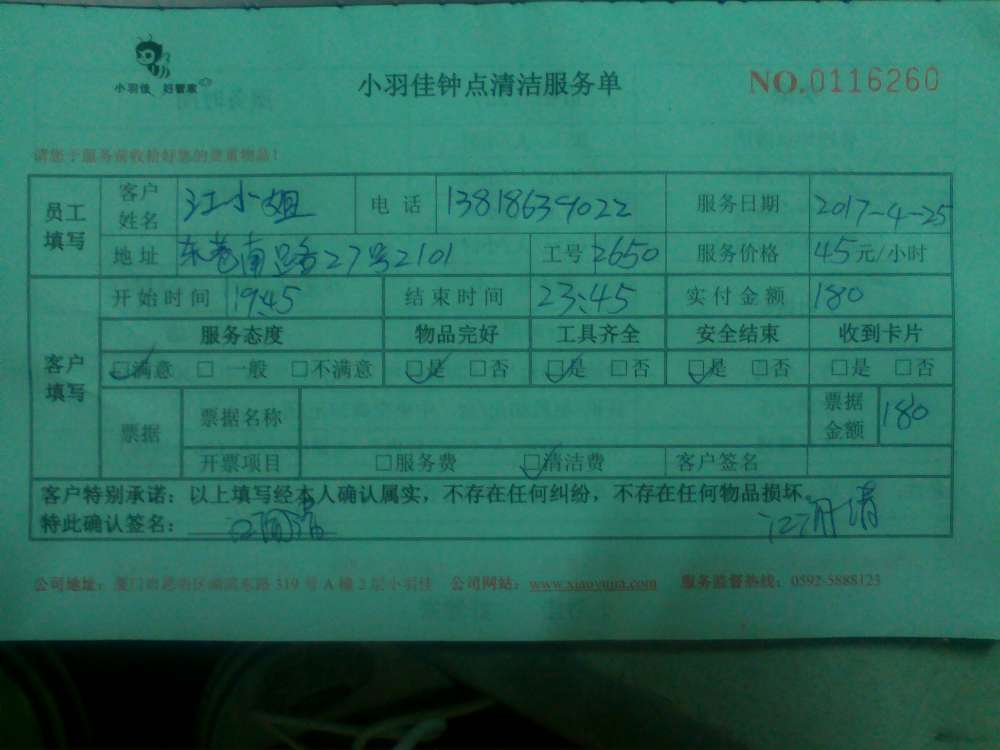 小羽佳 好管家
小羽佳钟点清洁服务单
NO.0116260
请您于服务前收拾好您的贵重物品！
员工填写 客户姓名 江小姐 电话 13818634022 服务日期 2017-4-25
地址 东巷南路27号2101 工号 2650 服务价格 45元/小时
客户填写 开始时间 19:45 结束时间 23:45 实付金额 180
服务态度 物品完好 工具齐全 安全结束 收到卡片
☑满意 □一般 □不满意 ☑是 □否 ☑是 □否 ☑是 □否 □是 □否
票据 票据名称 票据金额 180
开票项目 □服务费 ☑清洁费 客户签名
客户特别承诺：以上填写经本人确认属实，不存在任何纠纷，不存在任何物品损坏。
特此确认签名：
公司地址：厦门市思明区湖滨东路 319 号 A 幢 2 层小羽佳 公司网站：www.xiaoyujia.com 服务监督热线：0592-5888123